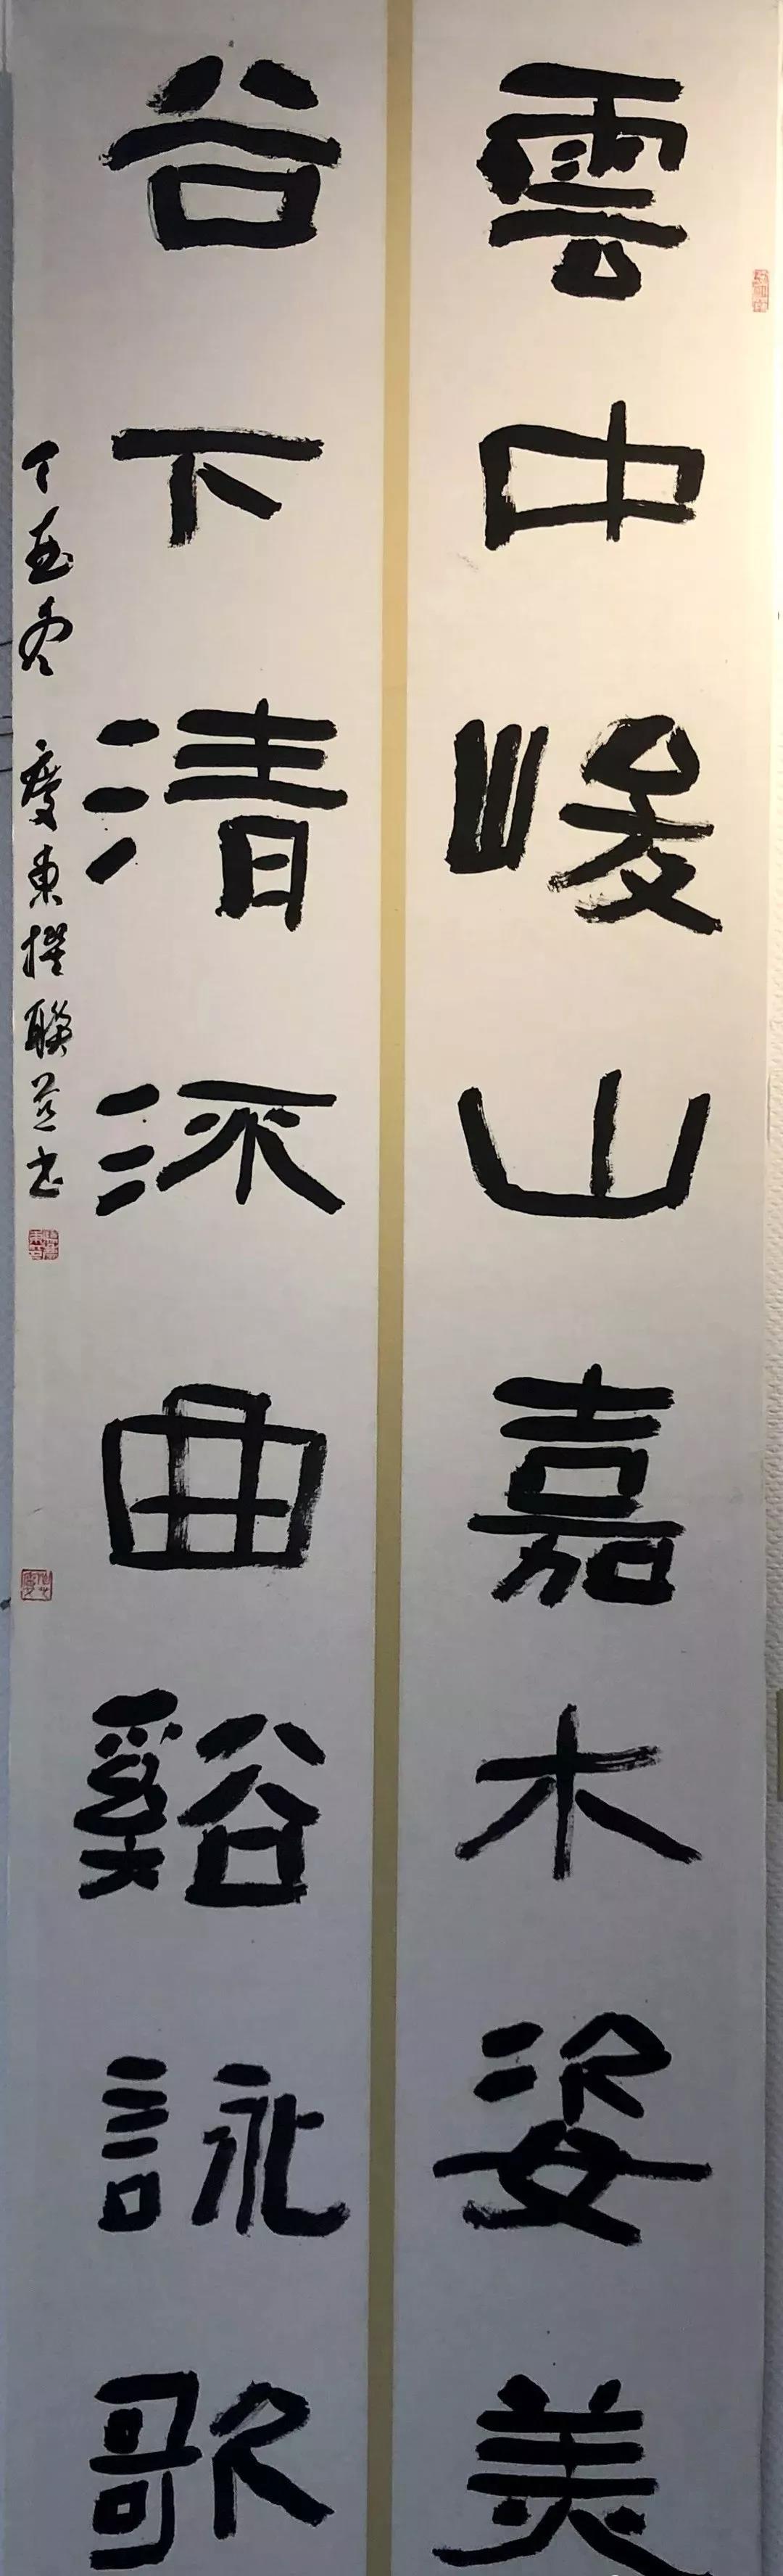 雲中峻山嘉木姿美
谷下清流曲谿詠歌
丁酉冬 慶東撰聯并书